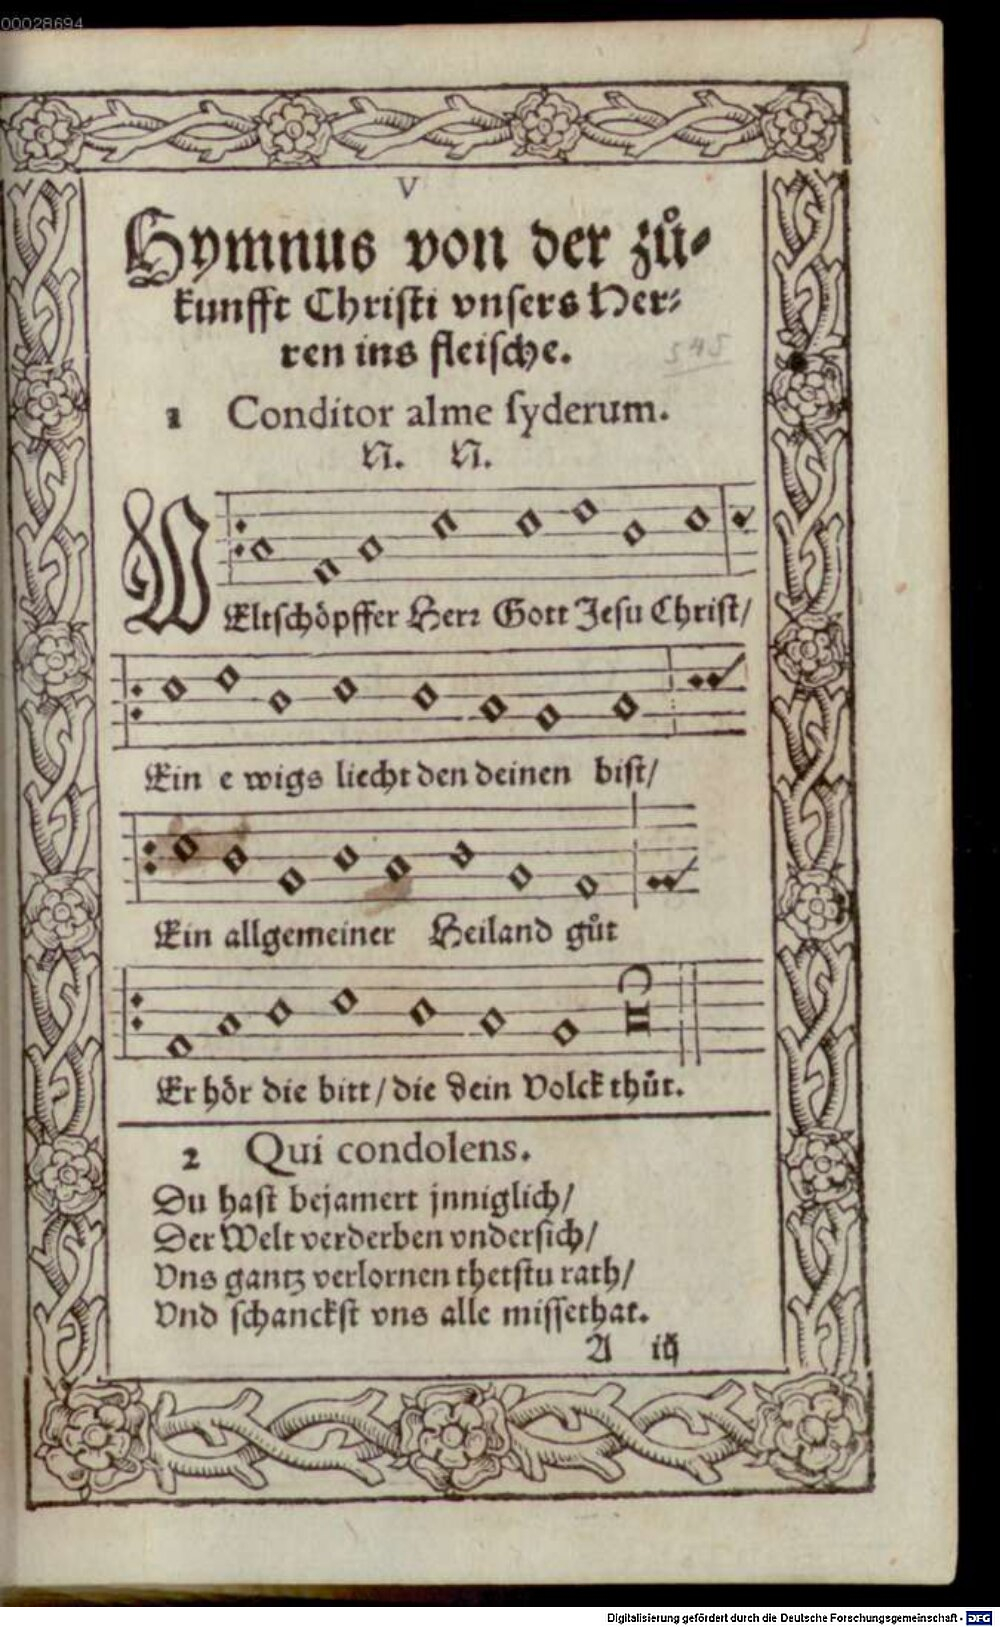 00028694
V
Hymnus von der zů-
kunfft Christi vnsers Her-
ren ins fleische.
545
1 Conditor alme syderum.
N. N.
WEltschöpffer Herr Gott Jesu Christ/
Ein e wigs liecht den deinen bist/
Ein allgemeiner Heiland gůt
Er hör die bitt/ die dein Volck thůt.
2 Qui condolens.
Du hast bejamert jnniglich/
Der Welt verderben vndersich/
Vns gantz verlornen thetstu rath/
Vnd schanckst vns alle missethat.
A iij
Digitalisierung gefördert durch die Deutsche Forschungsgemeinschaft - DFG